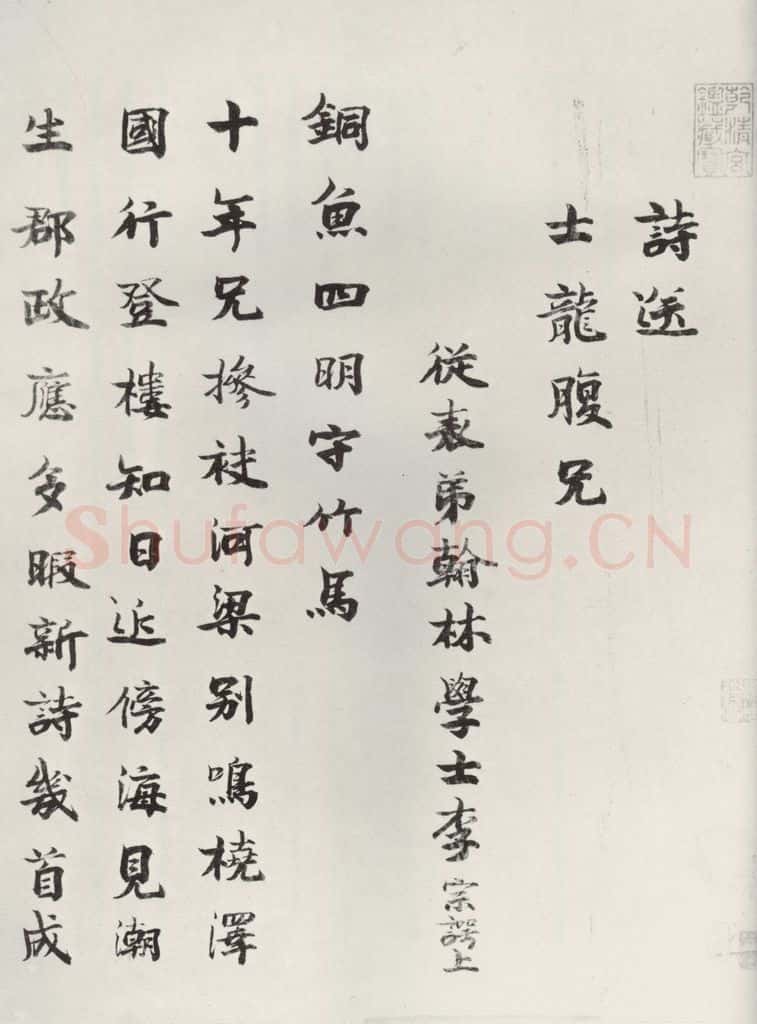 詩送
士龍腹兄
從表弟翰林學士李宗諤上
銅魚四明守竹馬
十年兄摻袂河梁别鳴橈澤
國行登樓知日近傍海見潮
生郡政應多暇新詩幾首成
乾清宮
鑑藏寶
Shufawang.CN